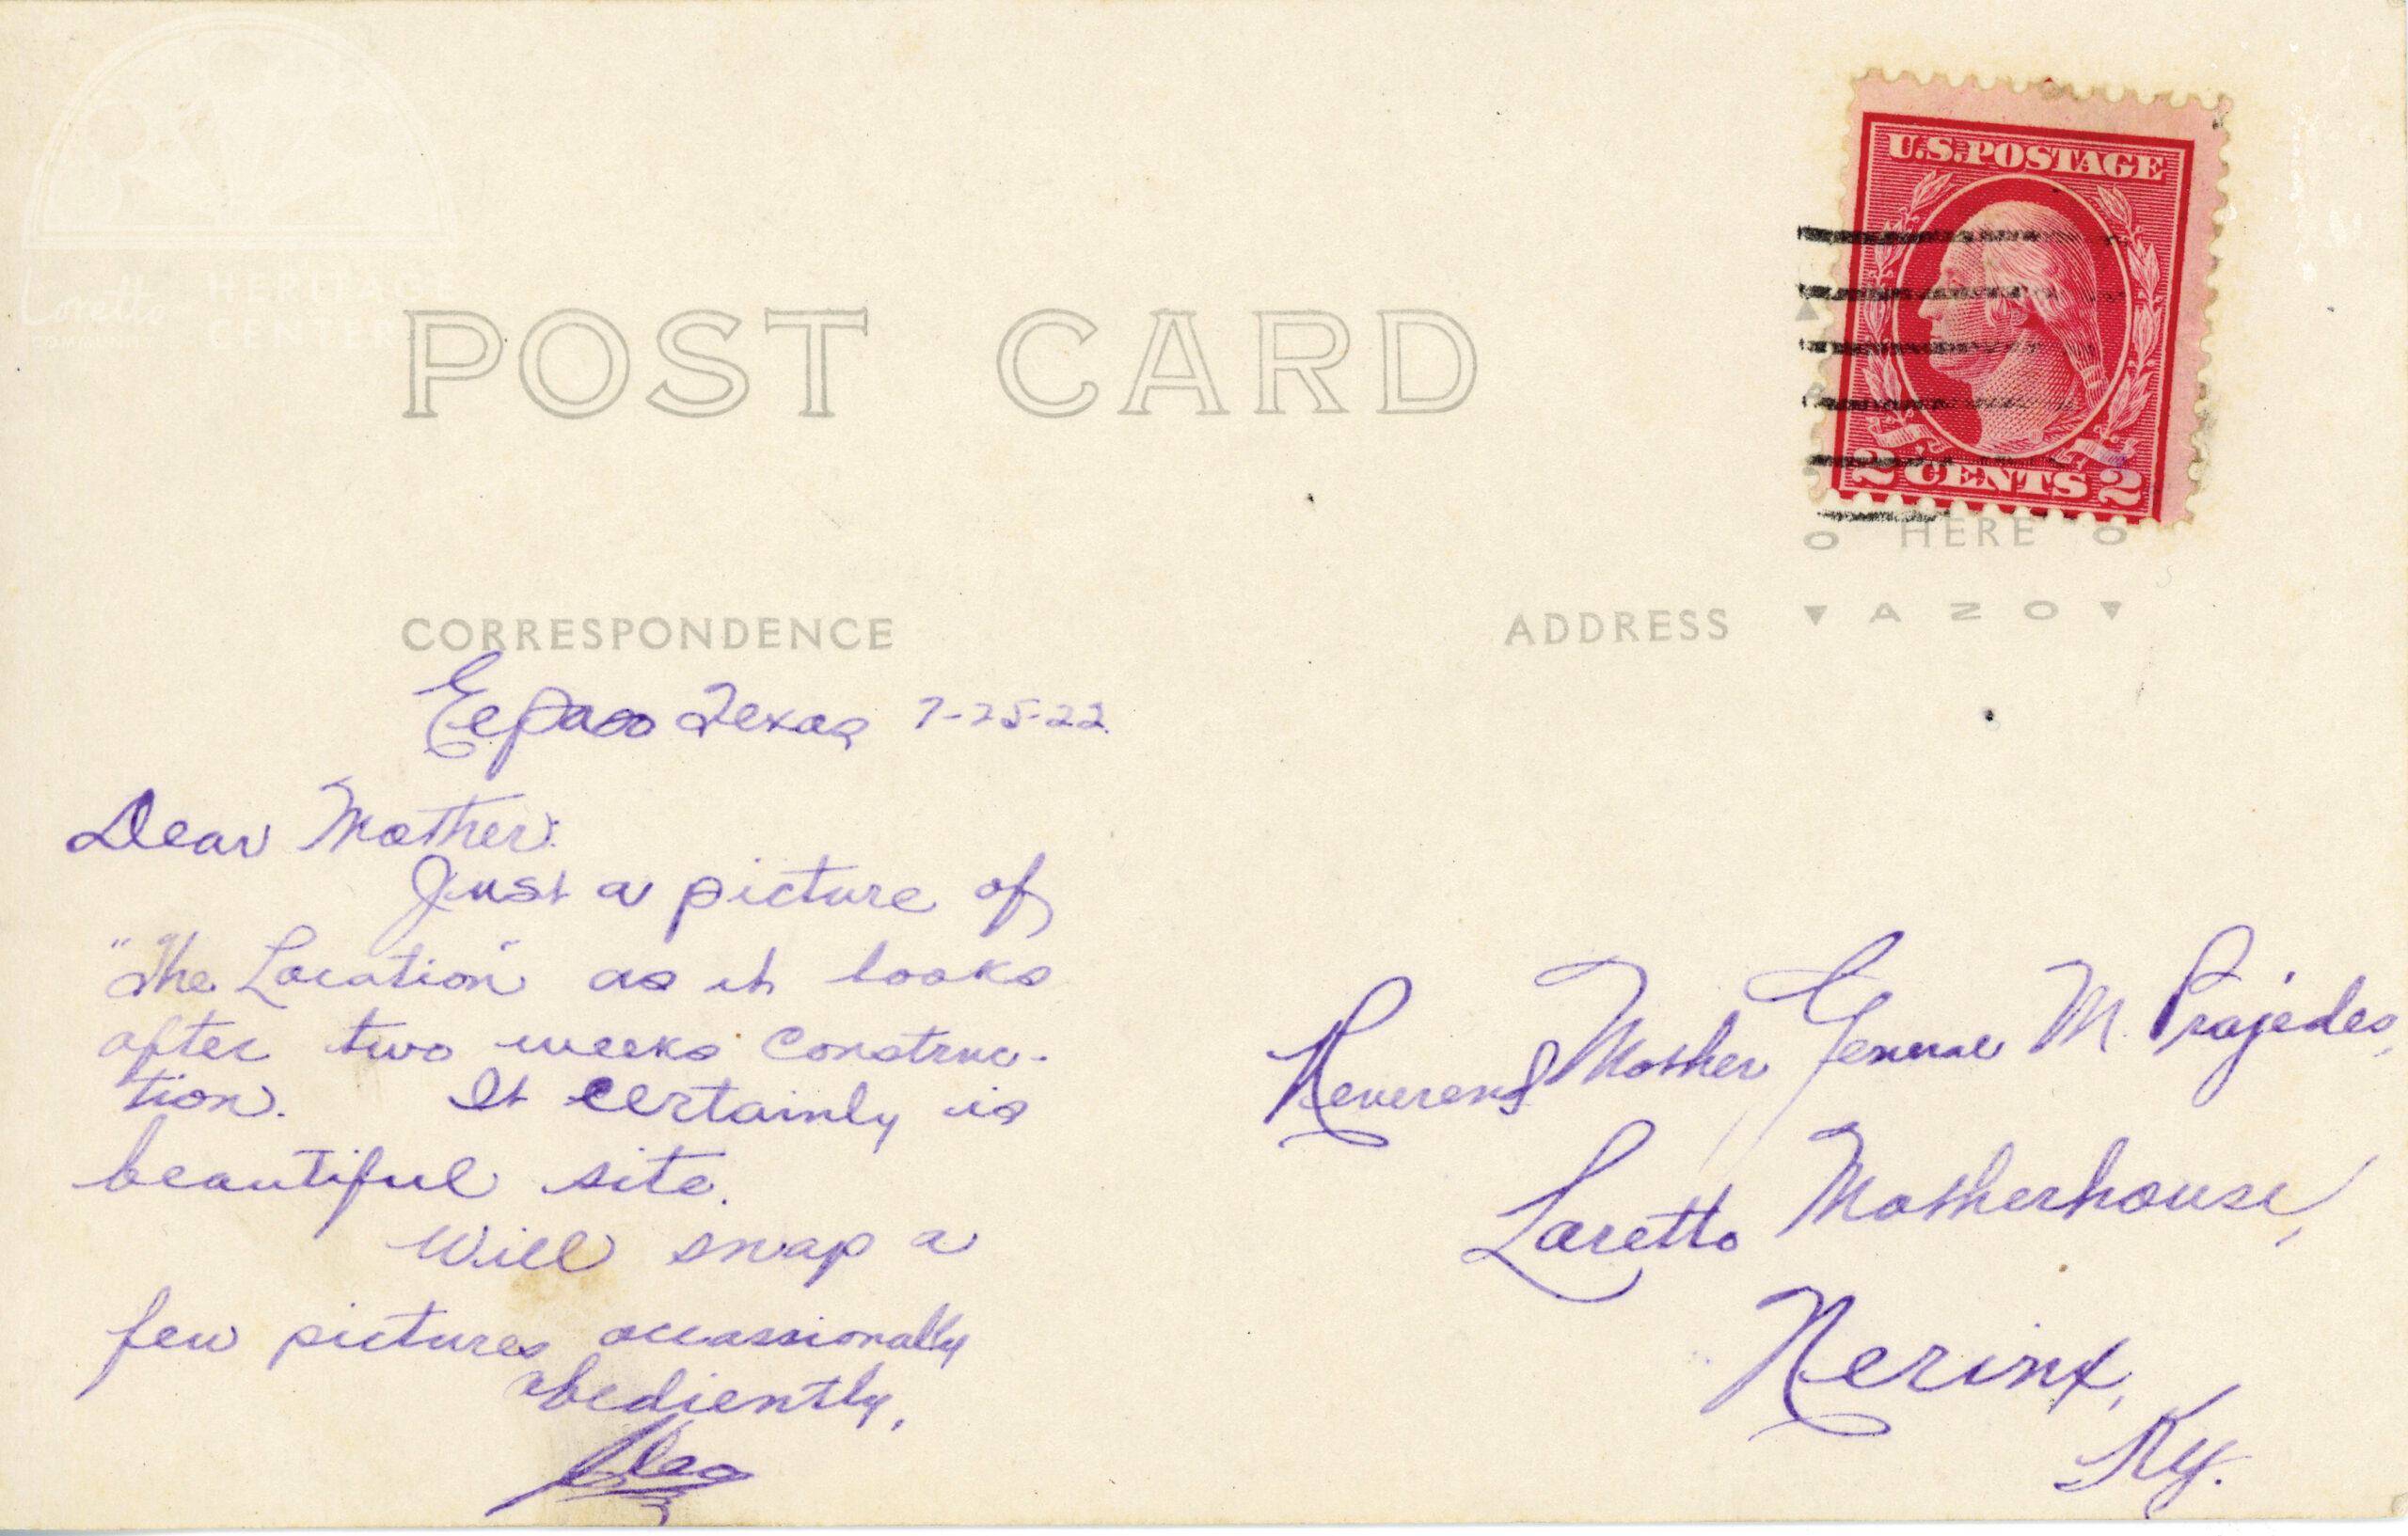 Loretto
COMMUNITY
HERITAGE
CENTER
POST CARD
U.S. POSTAGE
2 CENTS 2
HERE
AZO
CORRESPONDENCE
ADDRESS
El Paso Texas 7-25-22.
Dear Mother:
Just a picture of
"The Location" as it looks
after two weeks construc-
tion. It certainly is
beautiful site.
Will snap a
few pictures occassionally
obediently,
Reverend Mother General M. Prajedes,
Loretto Motherhouse,
Nerinx,
Ky.